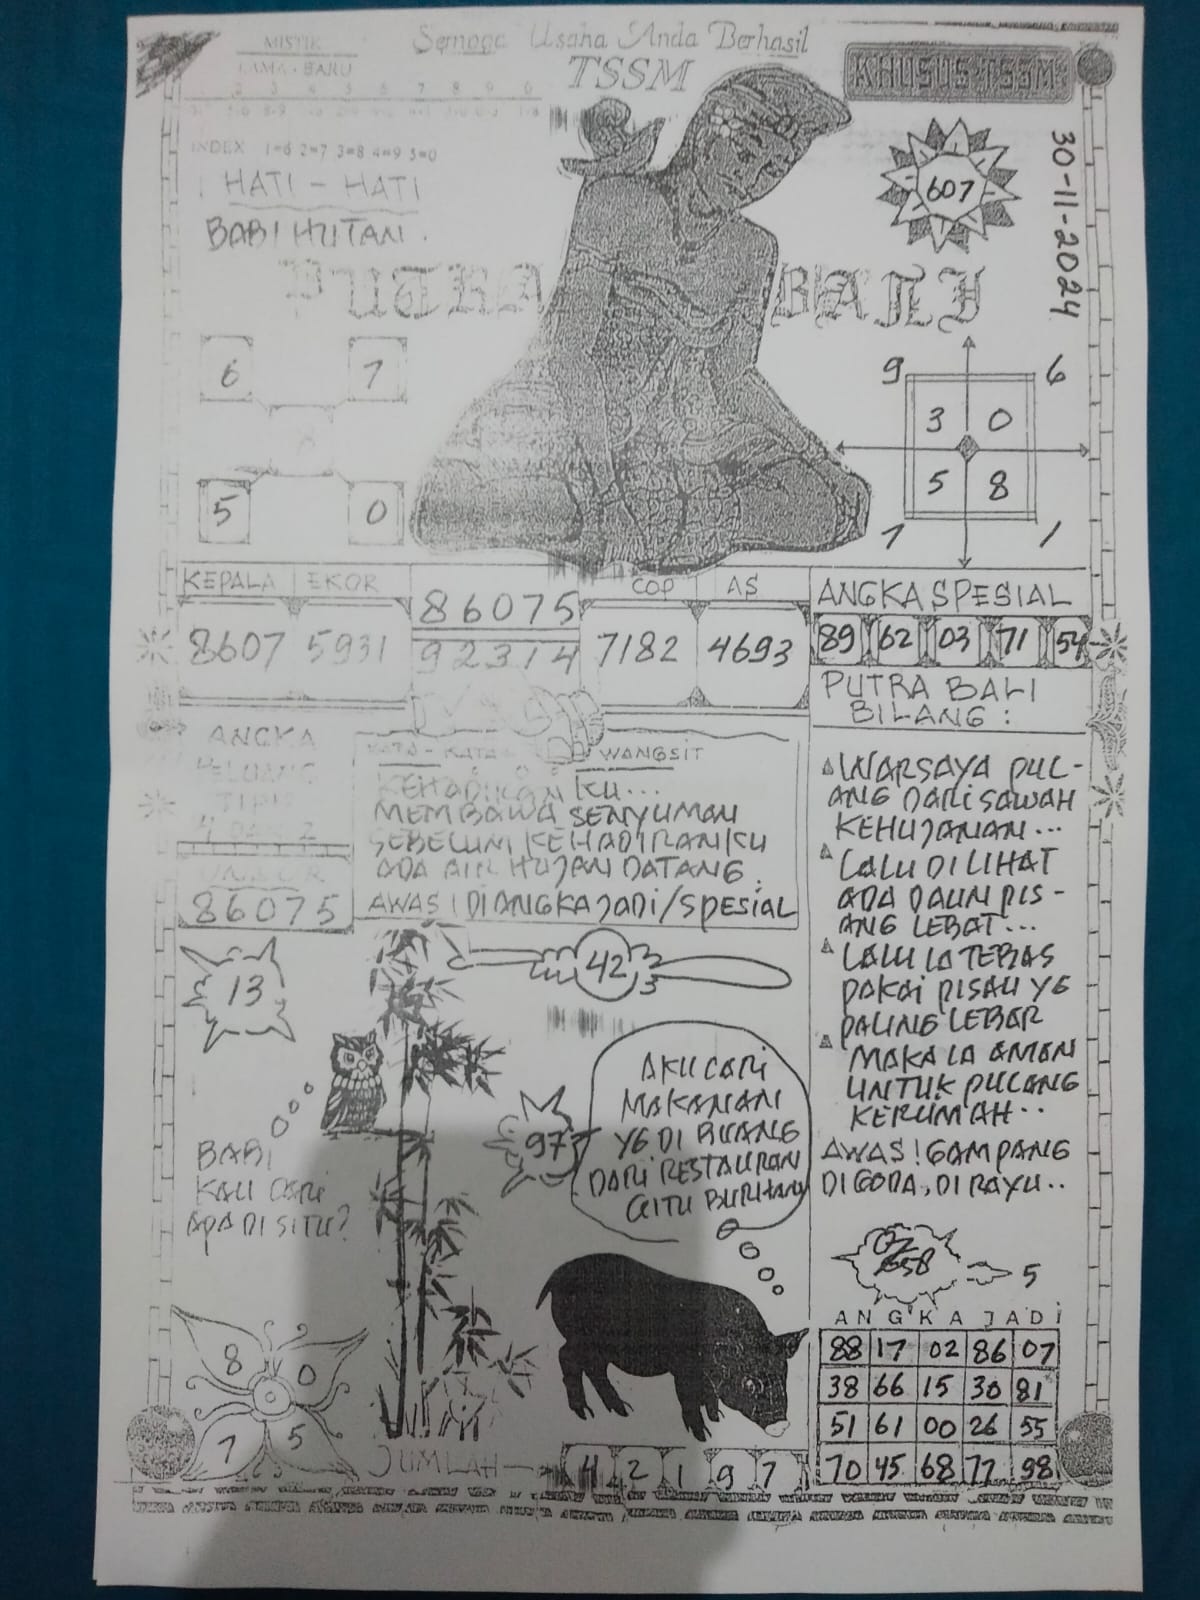 Semoga Usaha Anda Berhasil
TSSM
KHUSUS TSSM
MISTIK
LAMA - BARU
INDEX 1=6 2=7 3=8 4=9 5=0
HATI - HATI
BABI HUTAN.
607
30-11-2024
PUTRA BALI
6 7
5 0
9 6
3 0
5 8
7 1
KEPALA EKOR
8607 5931
86075
92314
COP AS
7182 4693
ANGKA SPESIAL
89 62 03 71 54
ANGKA
86075
KATA - KATA WANGSIT
KEHADIRANKU...
MEMBAWA SENYUMAN
SEBELUM KEHADIRANKU
ADA AIR HUJAN DATANG.
AWAS! DI ANGKA JADI/SPESIAL
PUTRA BALI
BILANG:
WARSAYA PUL-
ANG DARI SAWAH
KEHUJANAN...
LALU DI LIHAT
ADA DAUN PIS-
ANG LEBAT...
LALU IA TEBAS
PAKAI PISAU YG
PALING LEBAR
MAKA IA AMAN
UNTUK PULANG
KERUMAH..
AWAS! GAMPANG
DI GODA, DI RAYU..
13
42
3
97
BABI
KAU CARI
APA DI SITU?
AKU CARI
MAKANAN
YG DI BUANG
DARI RESTAURAN
GITU BURHAN
5
ANGKA JADI
88 17 02 86 07
38 66 15 30 81
51 61 00 26 55
70 45 68 77 98
8 0
7 5
JUMLAH
4 2 1 9 7